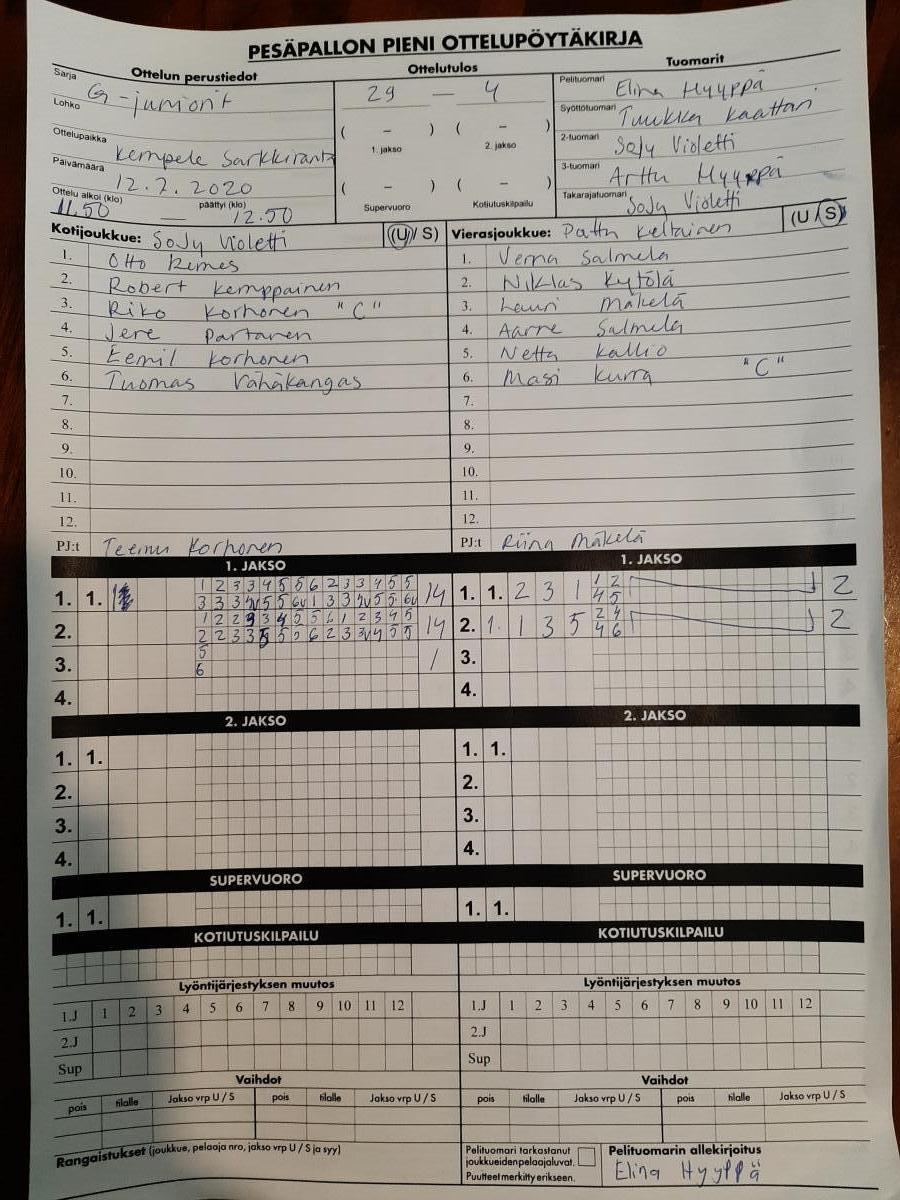 PESÄPALLON PIENI OTTELUPÖYTÄKIRJA
Ottelun perustiedot
Ottelutulos
Tuomarit
Sarja
G-juniorit
Lohko
Ottelupaikka
Kempele Sarkkiranta
Päivämäärä
12.7.2020
Ottelu alkoi (klo) päättyi (klo)
11.50 — 12.50
29 — 4
( – ) ( – )
1. jakso 2. jakso
( – ) ( – )
Supervuoro Kotiutuskilpailu
Pelituomari Elina Hyyppä
Syöttötuomari Tuukka Kaattari
2-tuomari SoJy Violetti
3-tuomari Arttu Hyyppä
Takarajatuomari SoJy Violetti
Kotijoukkue: SoJy Violetti (U/S)
1. Otto Remes
2. Robert Kemppainen
3. Riko Korhonen "C"
4. Jere Partanen
5. Eemil Korhonen
6. Tuomas Vähäkangas
7.
8.
9.
10.
11.
12.
PJ:t Teemu Korhonen
Vierasjoukkue: Pattu Keltainen (U/S)
1. Verna Salmela
2. Niklas Kytölä
3. Lauri Mäkelä
4. Aarne Salmela
5. Netta Kallio
6. Masi Kurra "C"
7.
8.
9.
10.
11.
12.
PJ:t Riina Mäkelä
1. JAKSO
1. 1. 14
1 2 3 3 4 5 5 6 2 3 3 4 5 5
2. 14
3. 5 6 1
4.
1. JAKSO
1. 1. 2 3 1 1 2 2
4 5
2. 1. 1 3 5 2 4 2
4 6
3.
4.
2. JAKSO
1. 1.
2.
3.
4.
2. JAKSO
1. 1.
2.
3.
4.
SUPERVUORO
1. 1.
SUPERVUORO
1. 1.
KOTIUTUSKILPAILU
KOTIUTUSKILPAILU
Lyöntijärjestyksen muutos
1.J 1 2 3 4 5 6 7 8 9 10 11 12
2.J
Sup
Lyöntijärjestyksen muutos
1.J 1 2 3 4 5 6 7 8 9 10 11 12
2.J
Sup
Vaihdot
pois tilalle Jakso vrp U / S pois tilalle Jakso vrp U / S
Vaihdot
pois tilalle Jakso vrp U / S pois tilalle Jakso vrp U / S
Rangaistukset (joukkue, pelaaja nro, jakso vrp U / S ja syy)
Pelituomari tarkastanut
joukkueiden pelaajaluvat.
Puutteet merkitty erikseen.
Pelituomarin allekirjoitus
Elina Hyyppä